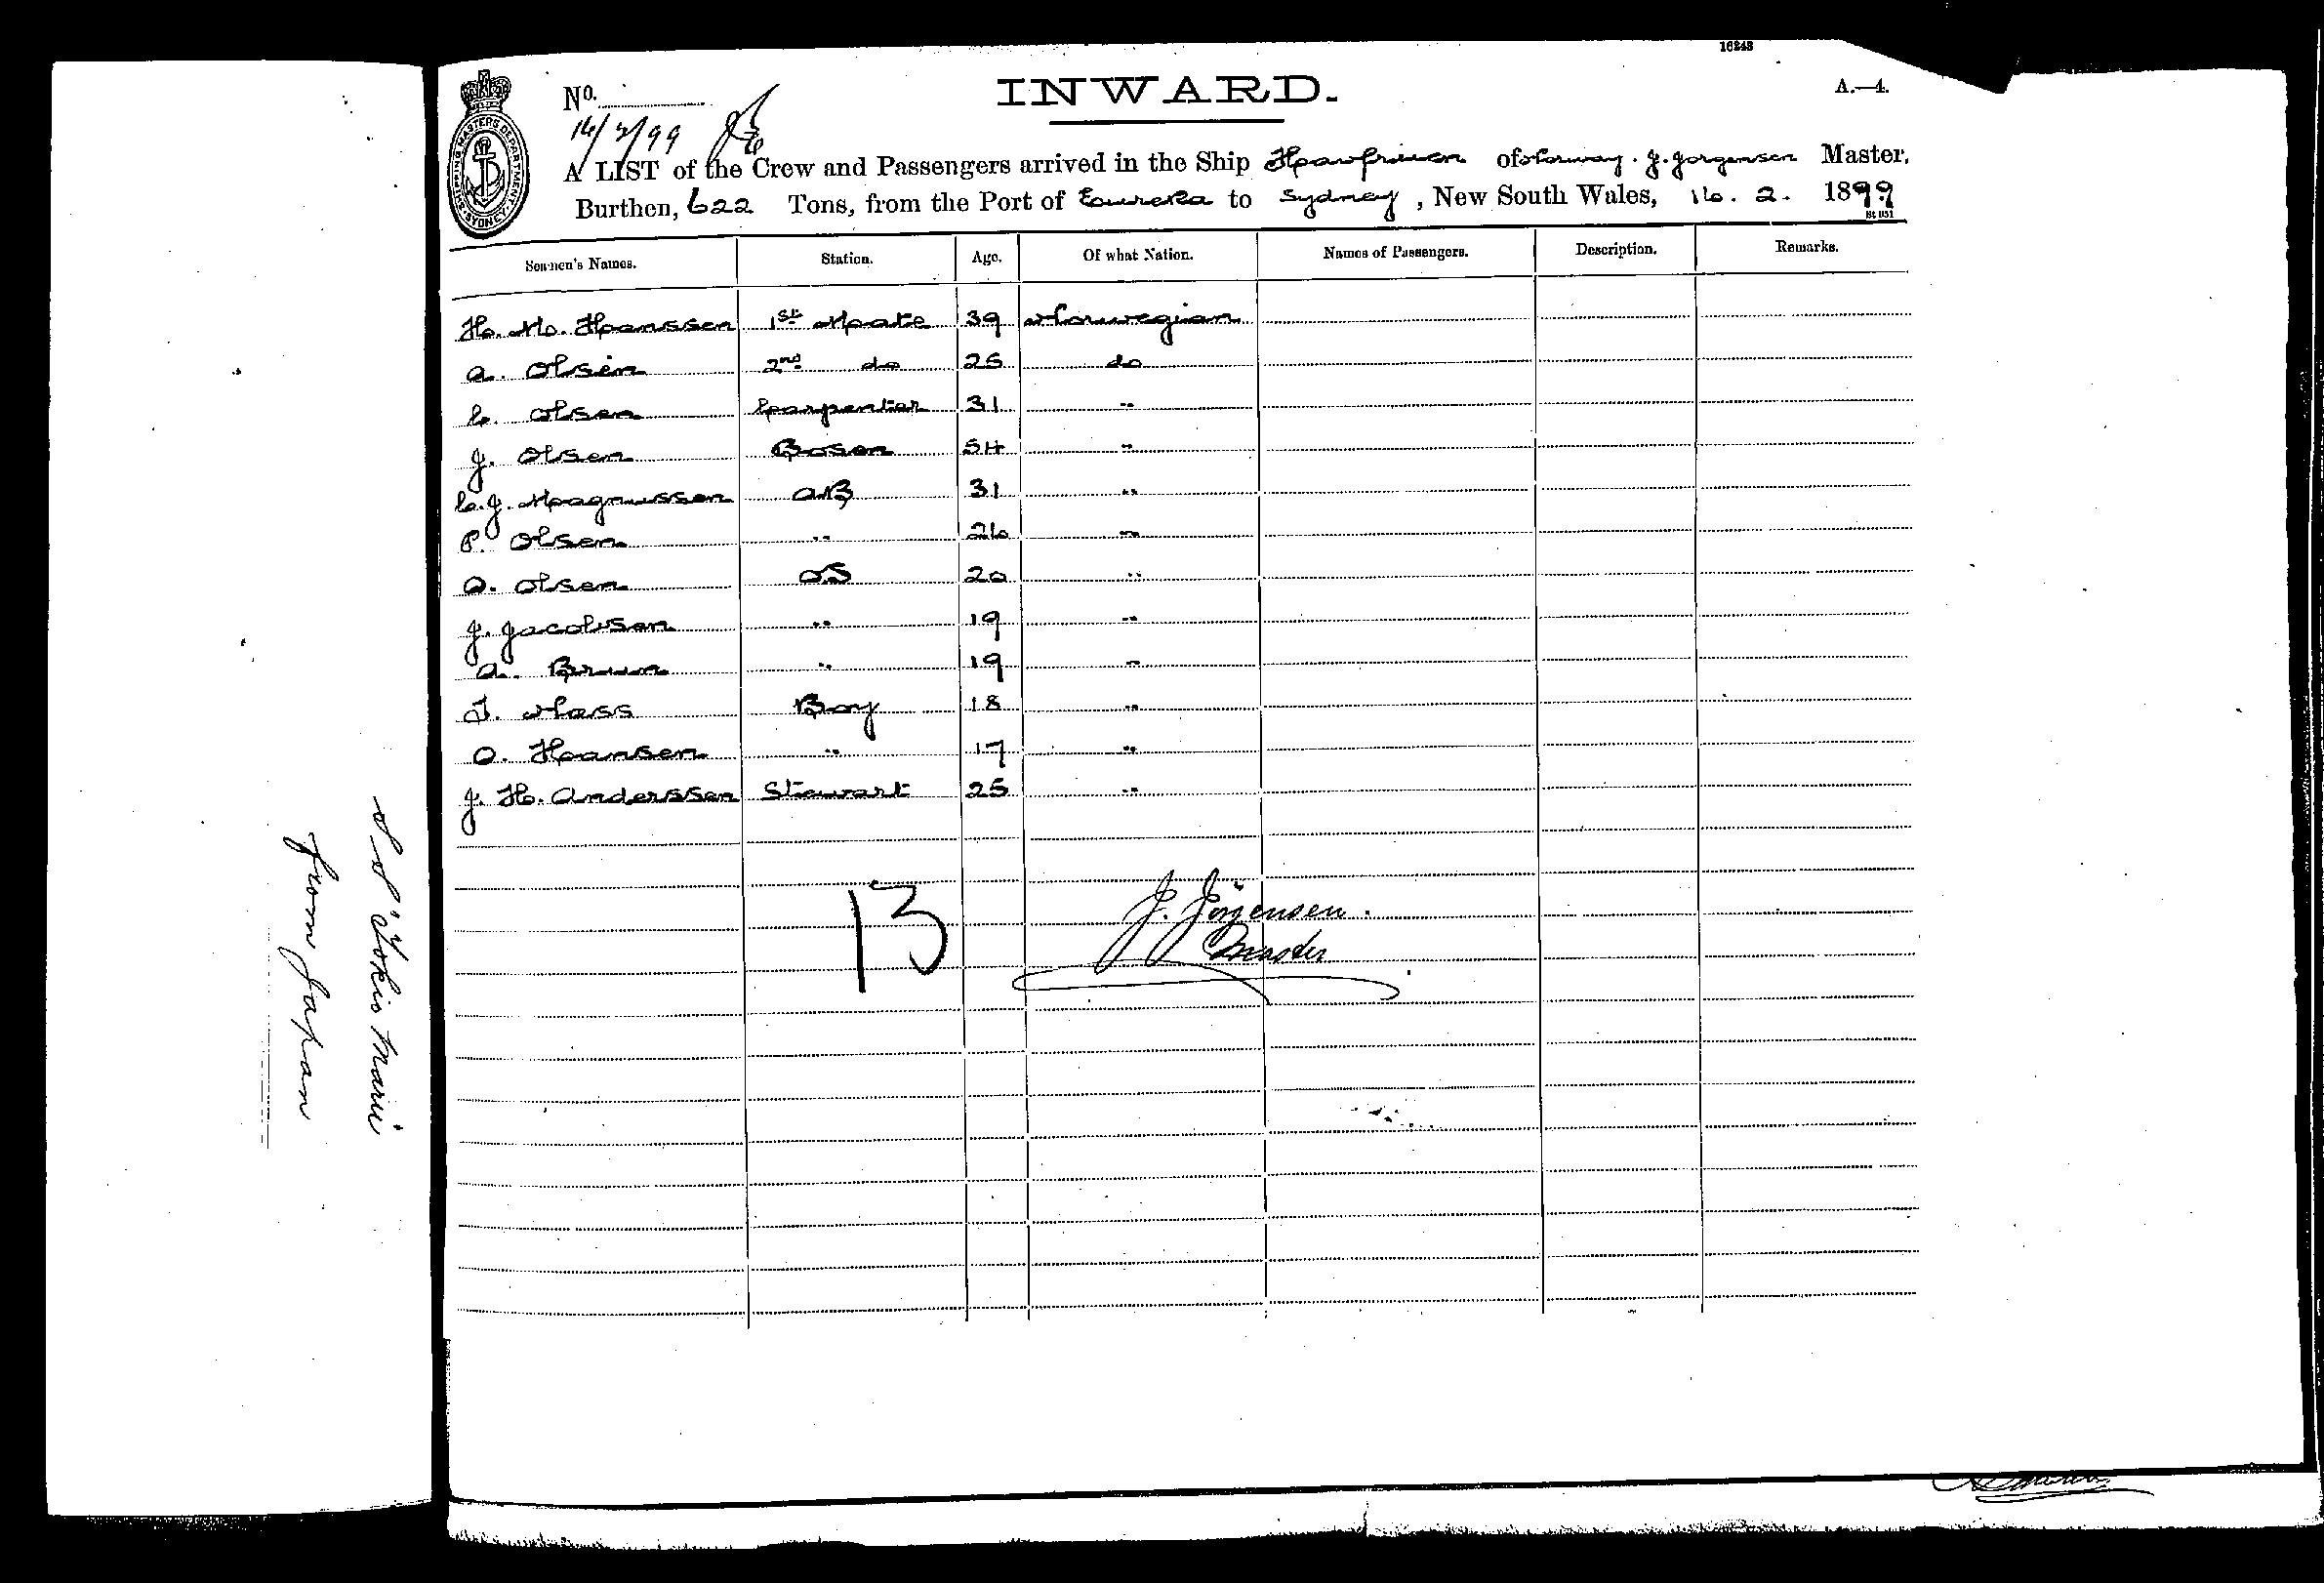 16243
INWARD.
A.—4.
No.
16/2/99
SHIPPING MASTERS DEPARTMENT SYDNEY
A LIST of the Crew and Passengers arrived in the Ship Havfruen of Norway. J. Jorgensen Master,
Burthen, 622 Tons, from the Port of Eureka to Sydney, New South Wales, 16. 2. 1899
Seamen's Names. Station. Age. Of what Nation. Names of Passengers. Description. Remarks.
H. M. Hanssen 1st Mate 39 Norwegian
A. Olsen 2nd do 25 do
C. Olsen Carpenter 31 "
J. Olsen Bosen 54 "
C. J. Magnussen AB 31 "
P. Olsen " 26 "
O. Olsen OS 20 "
J. Jacobsen " 19 "
A. Brun " 19 "
T. Nass Boy 18 "
O. Hansen " 17 "
J. H. Anderssen Stewart 25 "
13
J. Jörgensen.
Master
SS "Tokio Maru
from Japan